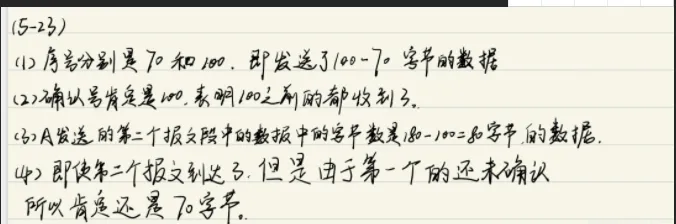 (5-23)
(1) 序号分别是70和100. 即发送了100-70 字节的数据
(2) 确认号肯定是100. 表明100之前的都收到了。
(3) A发送的第二个报文段中的数据中的字节数是180-100=80字节.的数据.
(4) 即使第二个报文到达了. 但是由于第一个的还未确认
所以肯定还是70字节。